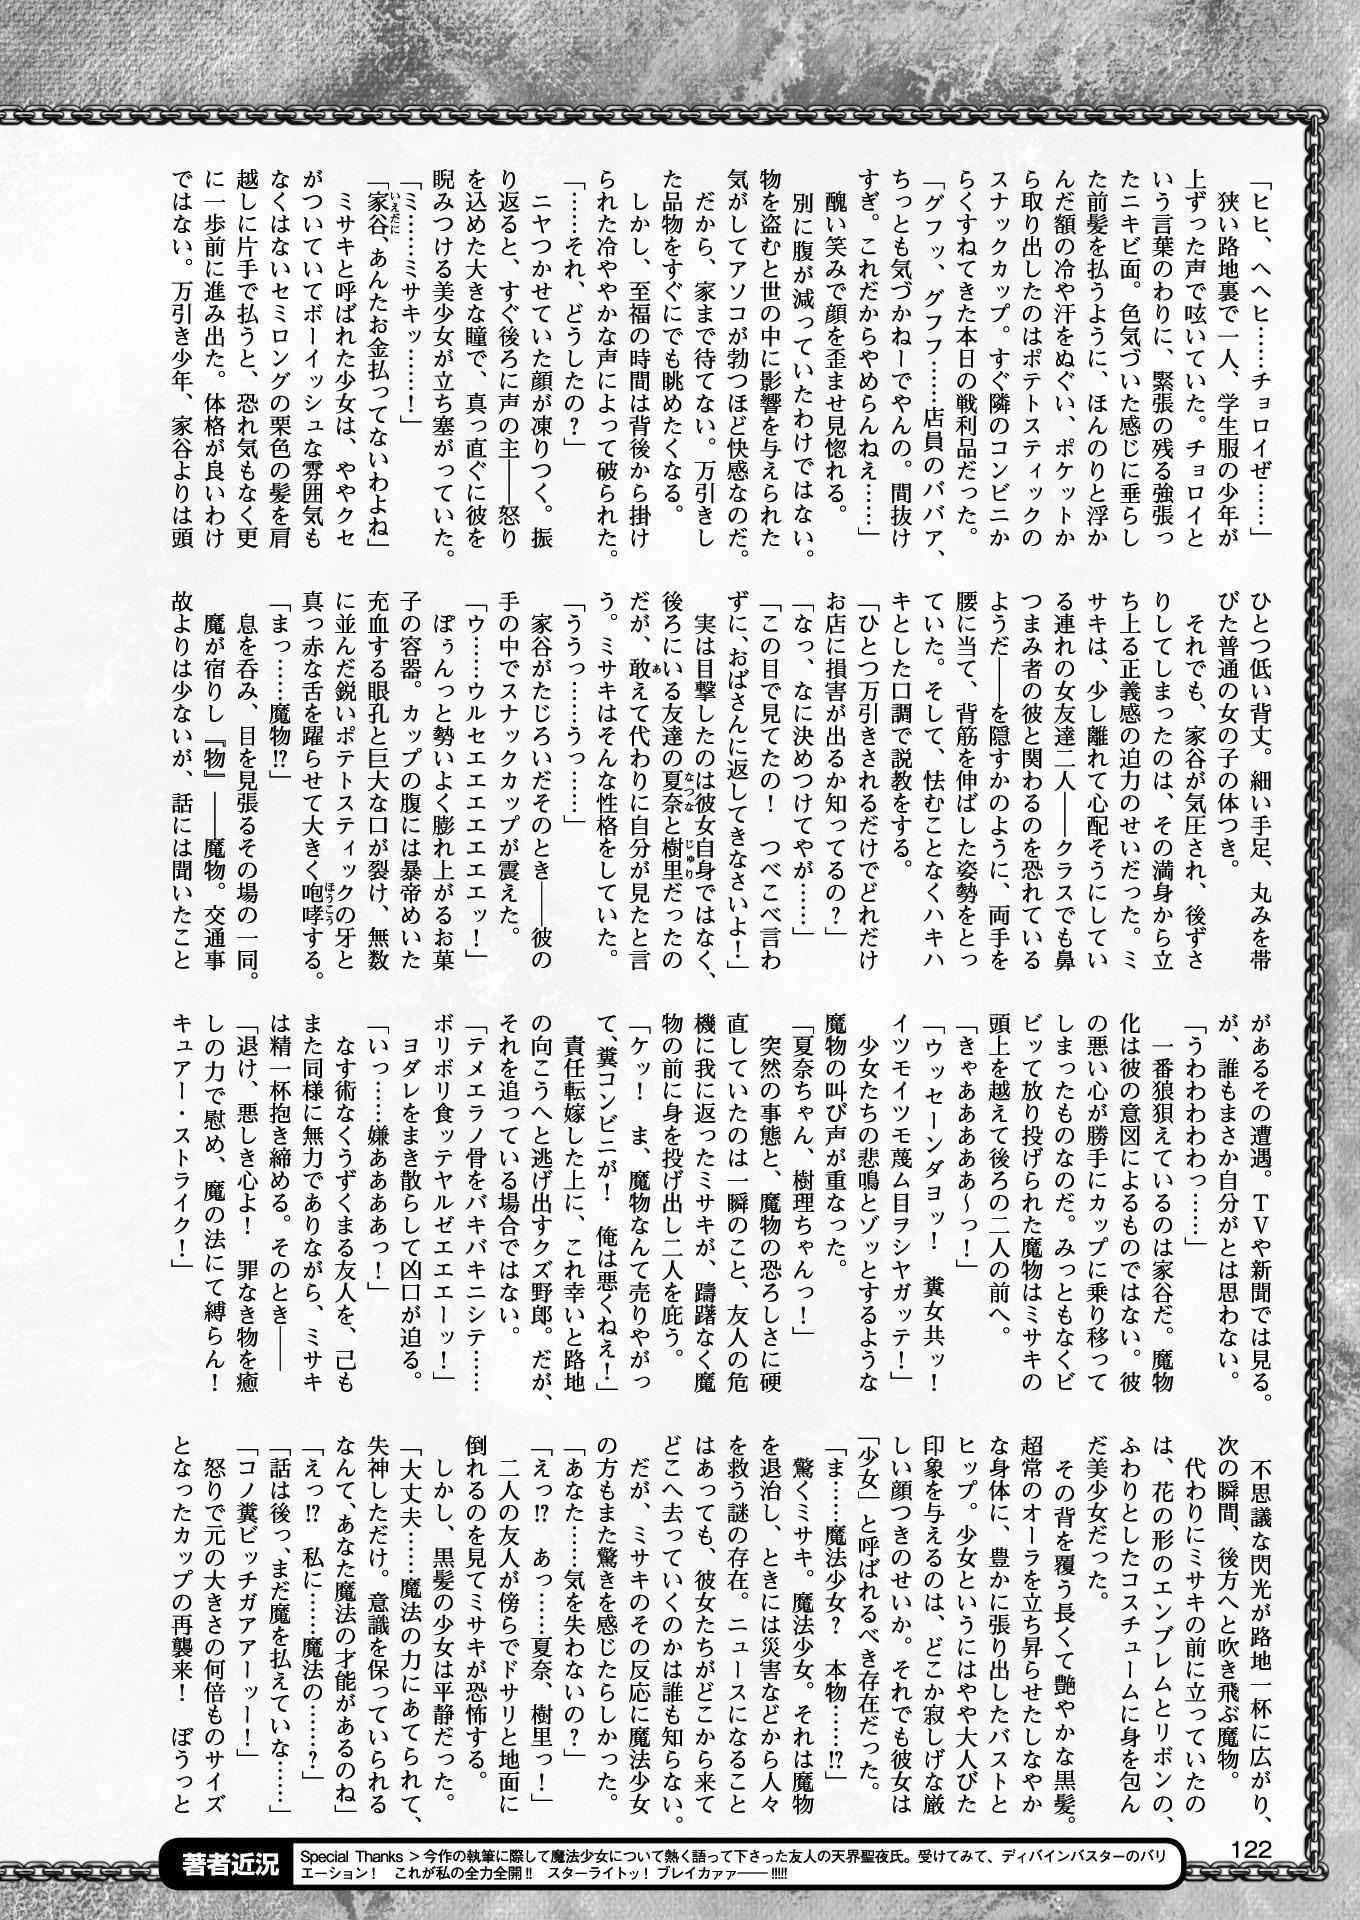 「ヒヒ、へへヒ……チョロイぜ……」
　狭い路地裏で一人、学生服の少年が
上ずった声で呟いていた。チョロイと
いう言葉のわりに、緊張の残る強張っ
たニキビ面。色気づいた感じに垂らし
た前髪を払うように、ほんのりと浮か
んだ額の冷や汗をぬぐい、ポケットか
ら取り出したのはポテトスティックの
スナックカップ。すぐ隣のコンビニか
らくすねてきた本日の戦利品だった。
「グフッ、グフフ……店員のババア、
ちっとも気づかねーでやんの。間抜け
すぎ。これだからやめらんねえ……」
　醜い笑みで顔を歪ませ見惚れる。
　別に腹が減っていたわけではない。
物を盗むと世の中に影響を与えられた
気がしてアソコが勃つほど快感なのだ。
　だから、家まで待てない。万引きし
た品物をすぐにでも眺めたくなる。
　しかし、至福の時間は背後から掛け
られた冷ややかな声によって破られた。
「……それ、どうしたの？」
　ニヤつかせていた顔が凍りつく。振
り返ると、すぐ後ろに声の主――怒り
を込めた大きな瞳で、真っ直ぐに彼を
睨みつける美少女が立ち塞がっていた。
「ミ……ミサキッ……！」
「家谷、あんたお金払ってないわよね」
　ミサキと呼ばれた少女は、ややクセ
がついていてボーイッシュな雰囲気も
なくはないセミロングの栗色の髪を肩
越しに片手で払うと、恐れ気もなく更
に一歩前に進み出た。体格が良いわけ
ではない。万引き少年、家谷よりは頭
ひとつ低い背丈。細い手足、丸みを帯
びた普通の女の子の体つき。
　それでも、家谷が気圧され、後ずさ
りしてしまったのは、その満身から立
ち上る正義感の迫力のせいだった。ミ
サキは、少し離れて心配そうにしてい
る連れの女友達二人――クラスでも鼻
つまみ者の彼と関わるのを恐れている
ようだ――を隠すかのように、両手を
腰に当て、背筋を伸ばした姿勢をとっ
ていた。そして、怯むことなくハキハ
キとした口調で説教をする。
「ひとつ万引きされるだけでどれだけ
お店に損害が出るか知ってるの？」
「なっ、なに決めつけてやが……」
「この目で見てたの！　つべこべ言わ
ずに、おばさんに返してきなさいよ！」
　実は目撃したのは彼女自身ではなく、
後ろにいる友達の夏奈と樹里だったの
だが、敢えて代わりに自分が見たと言
う。ミサキはそんな性格をしていた。
「ううっ……うっ……」
　家谷がたじろいだそのとき――彼の
手の中でスナックカップが震えた。
「ウ……ウルセエエエエエエエッ！」
　ぽぅんっと勢いよく膨れ上がるお菓
子の容器。カップの腹には暴帝めいた
充血する眼孔と巨大な口が裂け、無数
に並んだ鋭いポテトスティックの牙と
真っ赤な舌を躍らせて大きく咆哮する。
「まっ……魔物!?」
　息を呑み、目を見張るその場の一同。
　魔が宿りし『物』――魔物。交通事
故よりは少ないが、話には聞いたこと
があるその遭遇。ＴＶや新聞では見る。
が、誰もまさか自分がとは思わない。
「うわわわわっ……」
　一番狼狽えているのは家谷だ。魔物
化は彼の意図によるものではない。彼
の悪い心が勝手にカップに乗り移って
しまったものなのだ。みっともなくビ
ビッて放り投げられた魔物はミサキの
頭上を越えて後ろの二人の前へ。
「きゃああああああ〜っ！」
「ウッセーンダヨッ！　糞女共ッ！
イツモイツモ蔑ム目ヲシヤガッテ！」
　少女たちの悲鳴とゾッとするような
魔物の叫び声が重なった。
「夏奈ちゃん、樹理ちゃんっ！」
　突然の事態と、魔物の恐ろしさに硬
直していたのは一瞬のこと、友人の危
機に我に返ったミサキが、躊躇なく魔
物の前に身を投げ出し二人を庇う。
「ケッ！　ま、魔物なんて売りやがっ
て、糞コンビニが！　俺は悪くねぇ！」
　責任転嫁した上に、これ幸いと路地
の向こうへと逃げ出すクズ野郎。だが、
それを追っている場合ではない。
「テメエラノ骨をバキバキニシテ……
ボリボリ食ッテヤルゼエエエーッ！」
　ヨダレをまき散らして凶口が迫る。
「いっ……嫌ああああっ！」
　なす術なくうずくまる友人を、己も
また同様に無力でありながら、ミサキ
は精一杯抱き締める。そのとき――
「退け、悪しき心よ！　罪なき物を癒
しの力で慰め、魔の法にて縛らん！
キュアー・ストライク！」
　不思議な閃光が路地一杯に広がり、
次の瞬間、後方へと吹き飛ぶ魔物。
　代わりにミサキの前に立っていたの
は、花の形のエンブレムとリボンの、
ふわりとしたコスチュームに身を包ん
だ美少女だった。
　その背を覆う長くて艶やかな黒髪。
超常のオーラを立ち昇らせたしなやか
な身体に、豊かに張り出したバストと
ヒップ。少女というにはやや大人びた
印象を与えるのは、どこか寂しげな厳
しい顔つきのせいか。それでも彼女は
「少女」と呼ばれるべき存在だった。
「ま……魔法少女？　本物……!?」
　驚くミサキ。魔法少女。それは魔物
を退治し、ときには災害などから人々
を救う謎の存在。ニュースになること
はあっても、彼女たちがどこから来て
どこへ去っていくのかは誰も知らない。
　だが、ミサキのその反応に魔法少女
の方もまた驚きを感じたらしかった。
「あなた……気を失わないの？」
「えっ!?　あっ……夏奈、樹里っ！」
　二人の友人が傍らでドサリと地面に
倒れるのを見てミサキが恐怖する。
　しかし、黒髪の少女は平静だった。
「大丈夫……魔法の力にあてられて、
失神しただけ。意識を保っていられる
なんて、あなた魔法の才能があるのね」
「えっ!?　私に……魔法の……？」
「話は後っ、まだ魔を払えていな……」
「コノ糞ビッチガアアーッー！」
　怒りで元の大きさの何倍ものサイズ
となったカップの再襲来！　ぼうっと
いえだに
なつな
じゅり
あ
ほうこう
122
著者近況
Special Thanks ＞今作の執筆に際して魔法少女について熱く語って下さった友人の天界聖夜氏。受けてみて、ディバインバスターのバリ
エーション！　これが私の全力全開!!　スターライトッ！ ブレイカァァ――!!!!!